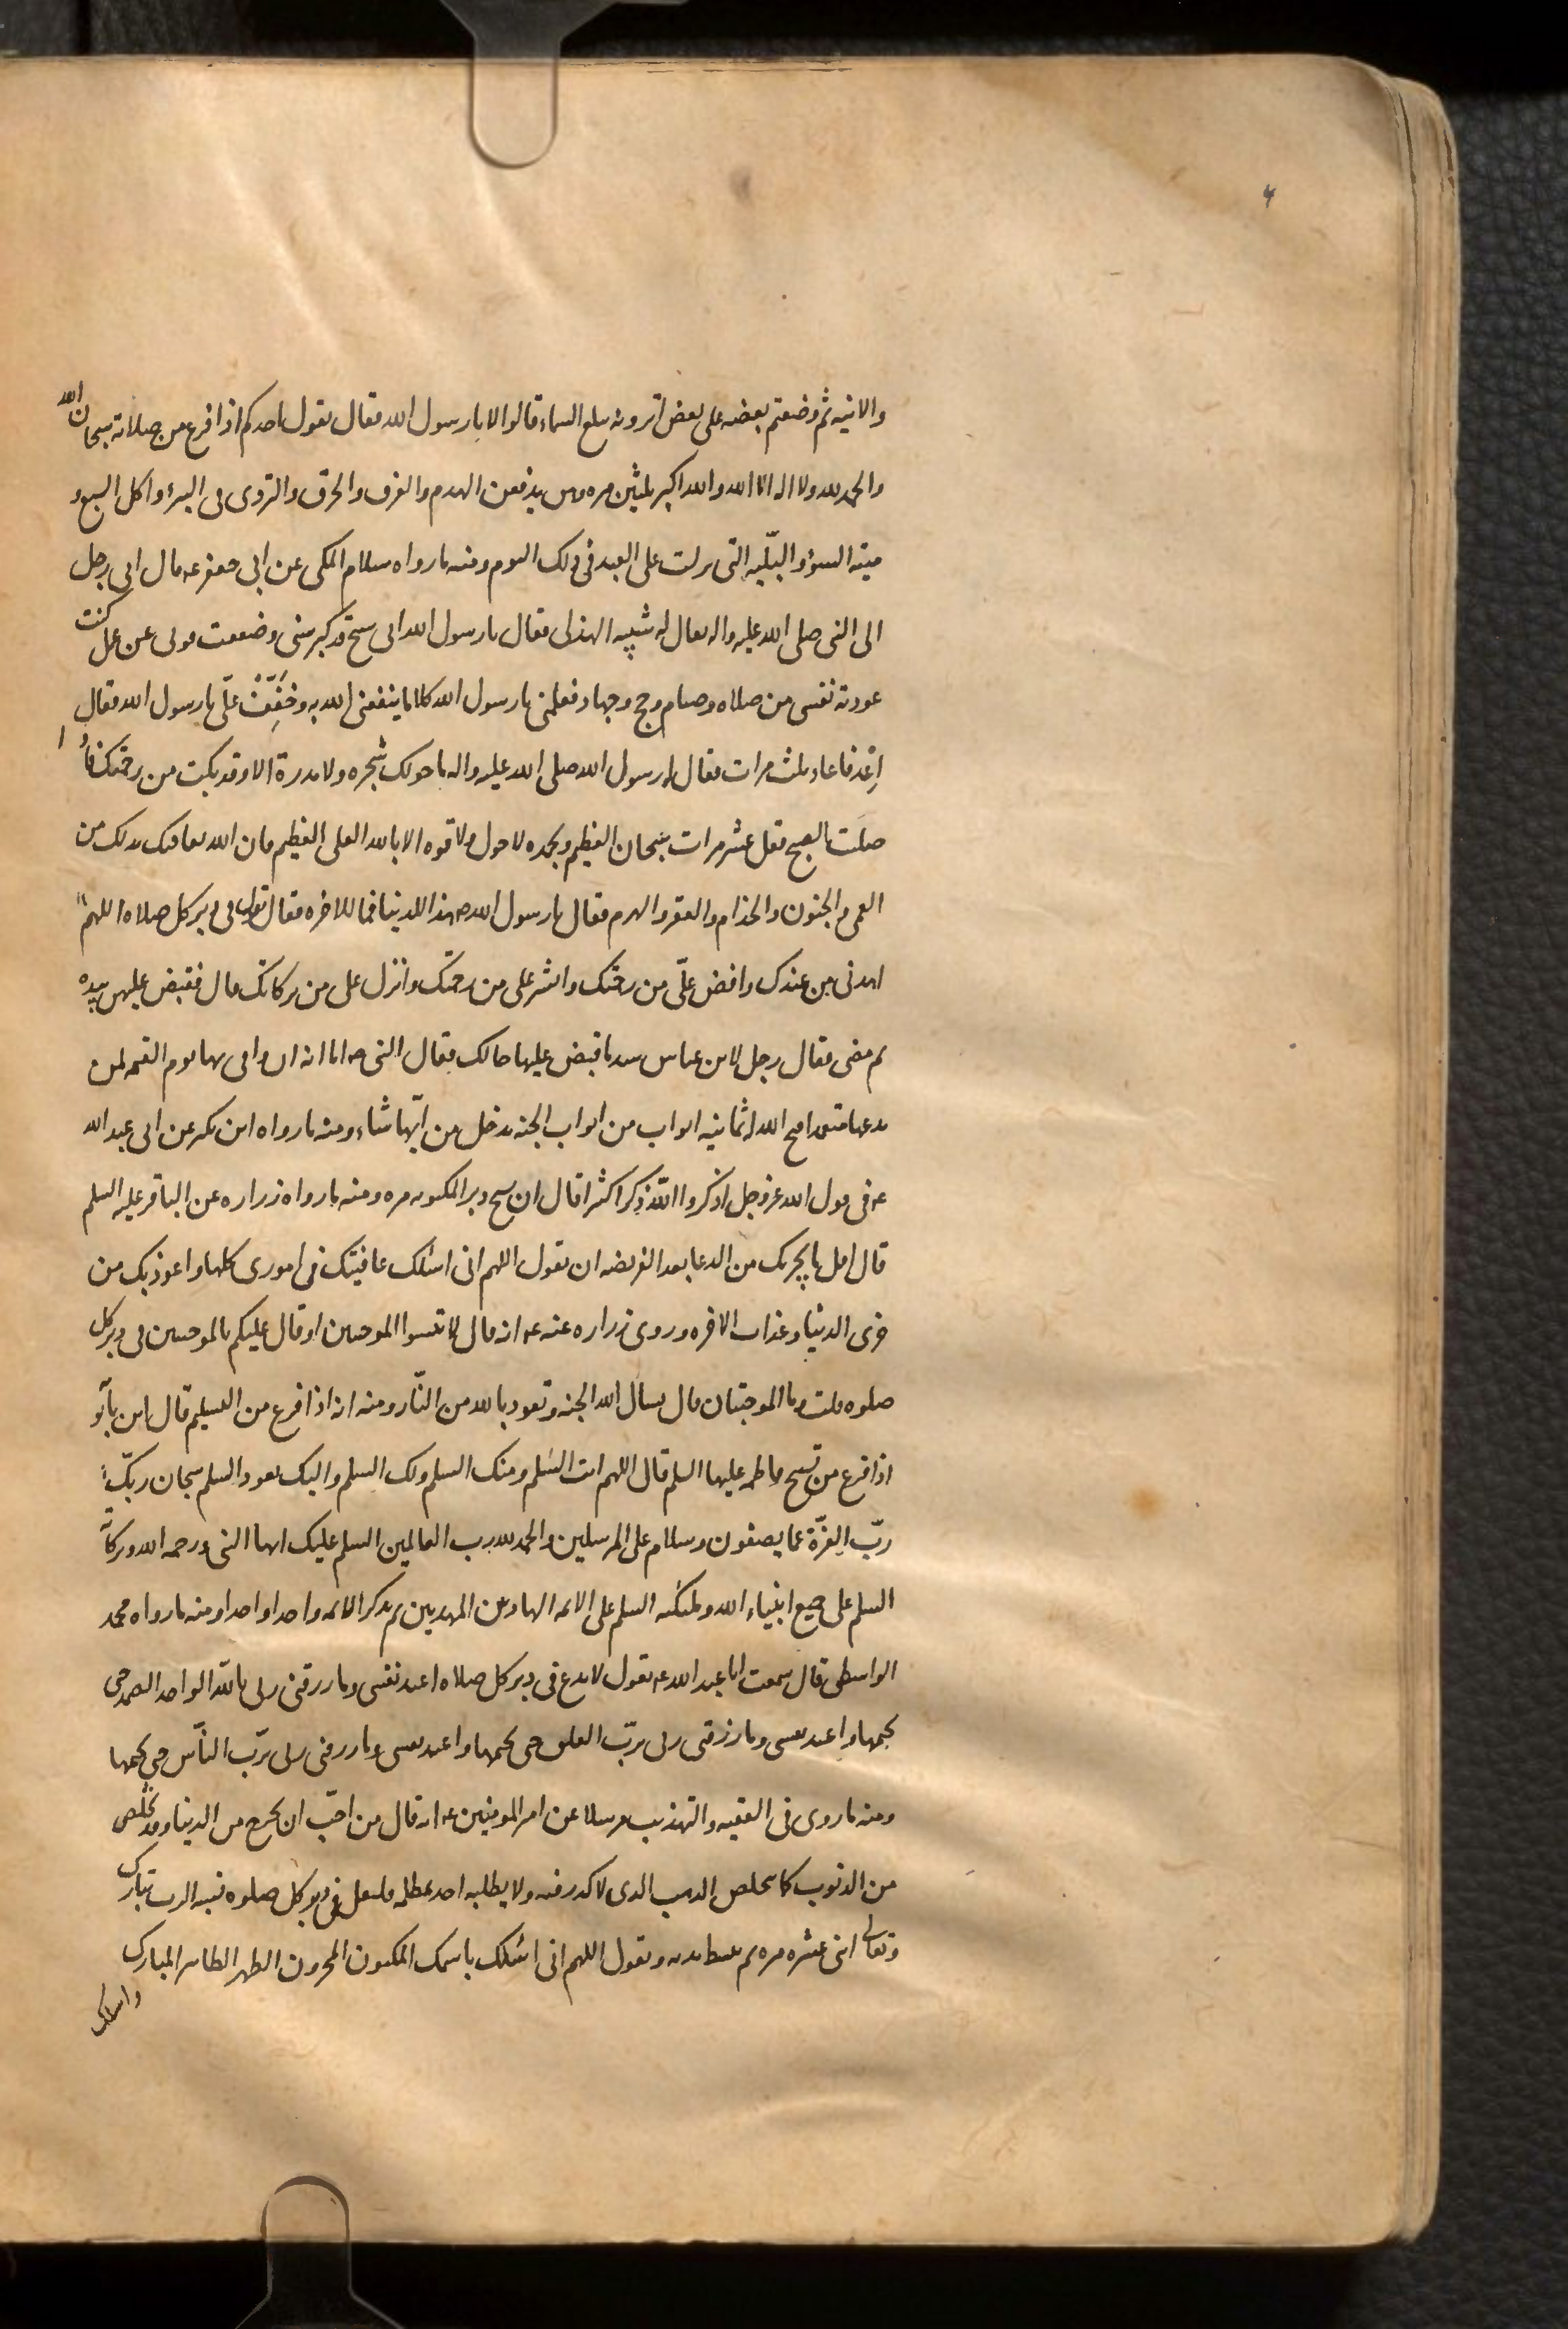 ۴
والانيه ثم وضعتم بعضه على بعض اترونه يبلغ السماء قالوا لا يا رسول الله فقال يقول احدكم اذا فرغ من صلاته سبحان الله
والحمد لله ولا اله الا الله والله اكبر ثلثين مره وهن يدفعن الهدم والغرق والحرق والتردى فى البئر واكل السبع و
ميته السوء والبليّه التى نزلت على العبد فى ذلك اليوم ومنه ما رواه سلام المكى عن ابى جعفر عه قال اتى رجل
الى النبى صلى الله عليه واله يقال له شيبه الهذلى فقال يا رسول الله انى شيخ قد كبر سنى وضعفت قوتى عن عمل كنت
عودته نفسى من صلاه وصيام وحج وجهاد فعلمنى يا رسول الله كلاما ينفعنى الله به وخَفِّفْ علىّ يا رسول الله فقال
اِعْد فاعاد ثلث مرات فقال له رسول الله صلى الله عليه واله ما حولك شجره ولا مدرة الا وقد بكت من رحمتك فاذا
صلّيت الصبح فقل عشر مرات سبحان العظيم وبحمده لا حول ولا قوه الا بالله العلى العظيم فان الله يعافيك بذلك من
العمى والجنون والجذام والفقر والهرم فقال يا رسول الله هذا للدنيا فما للاخره فقال تقول فى دبر كل صلاه اللهم
اهدنى من عندك وافض علىّ من رحمتك وانشر على من رحمتك وانزل على من بركاتك قال فقبض عليهن بيده
ثم مضى فقال رجل لابن عباس شد ما قبض عليها خالك فقال النبى ص اما انه ان وافى بها يوم القيمه لمن
يدعها متعمدا فتح الله له ثمانيه ابواب من ابواب الجنه يدخل من ايّها شاء ومنه ما رواه ابن بكير عن ابى عبد الله
عه فى قول الله عز وجل اذكروا اللّه ذكرا كثيرا قال ان يسبح دبر المكتوبه مره ومنه ما رواه زراره عن الباقر عليه السلم
قال اقل ما يجزيك من الدعا بعد الفريضه ان تقول اللهم انى اسئلك عافيتك فى امورى كلها واعوذ بك من
خزى الدنيا وعذاب الاخره وروى زراره عنه عه انه قال لا تنسوا الموجبتين او قال عليكم بالموجبتين فى دبر كل
صلوه قلت وما الموجبتان قال يسال الله الجنه وتعوذ بالله من النّار ومنه انه اذا فرغ من التسليم قال ابن بابو
اذا فرغ من تسبيح فاطمه عليها السلم قال اللهم انت السَلم ومنك السلم ولك السلم واليك يعود السلم سبحان ربّك
ربّ العِزّة عما يصفون وسلام على المرسلين والحمد لله رب العالمين السلم عليك ايها النبى ورحمه الله وبركاته
السلم على جميع انبياء الله وملئكته السلم على الائمه الهادين المهديين ثم يذكر الائمه واحدا واحدا ومنه ما رواه محمد
الواسطى قال سمعت ابا عبد الله عه يقول لا تدع فى دبر كل صلاه اعيذ نفسى وما رزقنى ربى باللّه الواحد الصمد حتى
يختمها واعيذ نفسى وما رزقنى ربى بربّ الفلق حتى يختمها واعيذ نفسى وما رزقنى ربى بربّ النّاس حتى يختمها
ومنه ما روى فى الفقيه والتهذيب مرسلا عن امير المومنين عه انه قال من احبّ ان يخرج من الدنيا وقد تخلّص
من الذنوب كما يتخلص الذهب الذى لا كدر فيه ولا يطلبه احد بمظلمه فليقل فى دبر كل صلوه نسبه الرب تبارك
وتعالى اثنى عشره مره ثم يبسط يديه ويقول اللهم انى اسئلك باسمك المكنون المخزون الطهر الطاهر المبارك
واسئلك